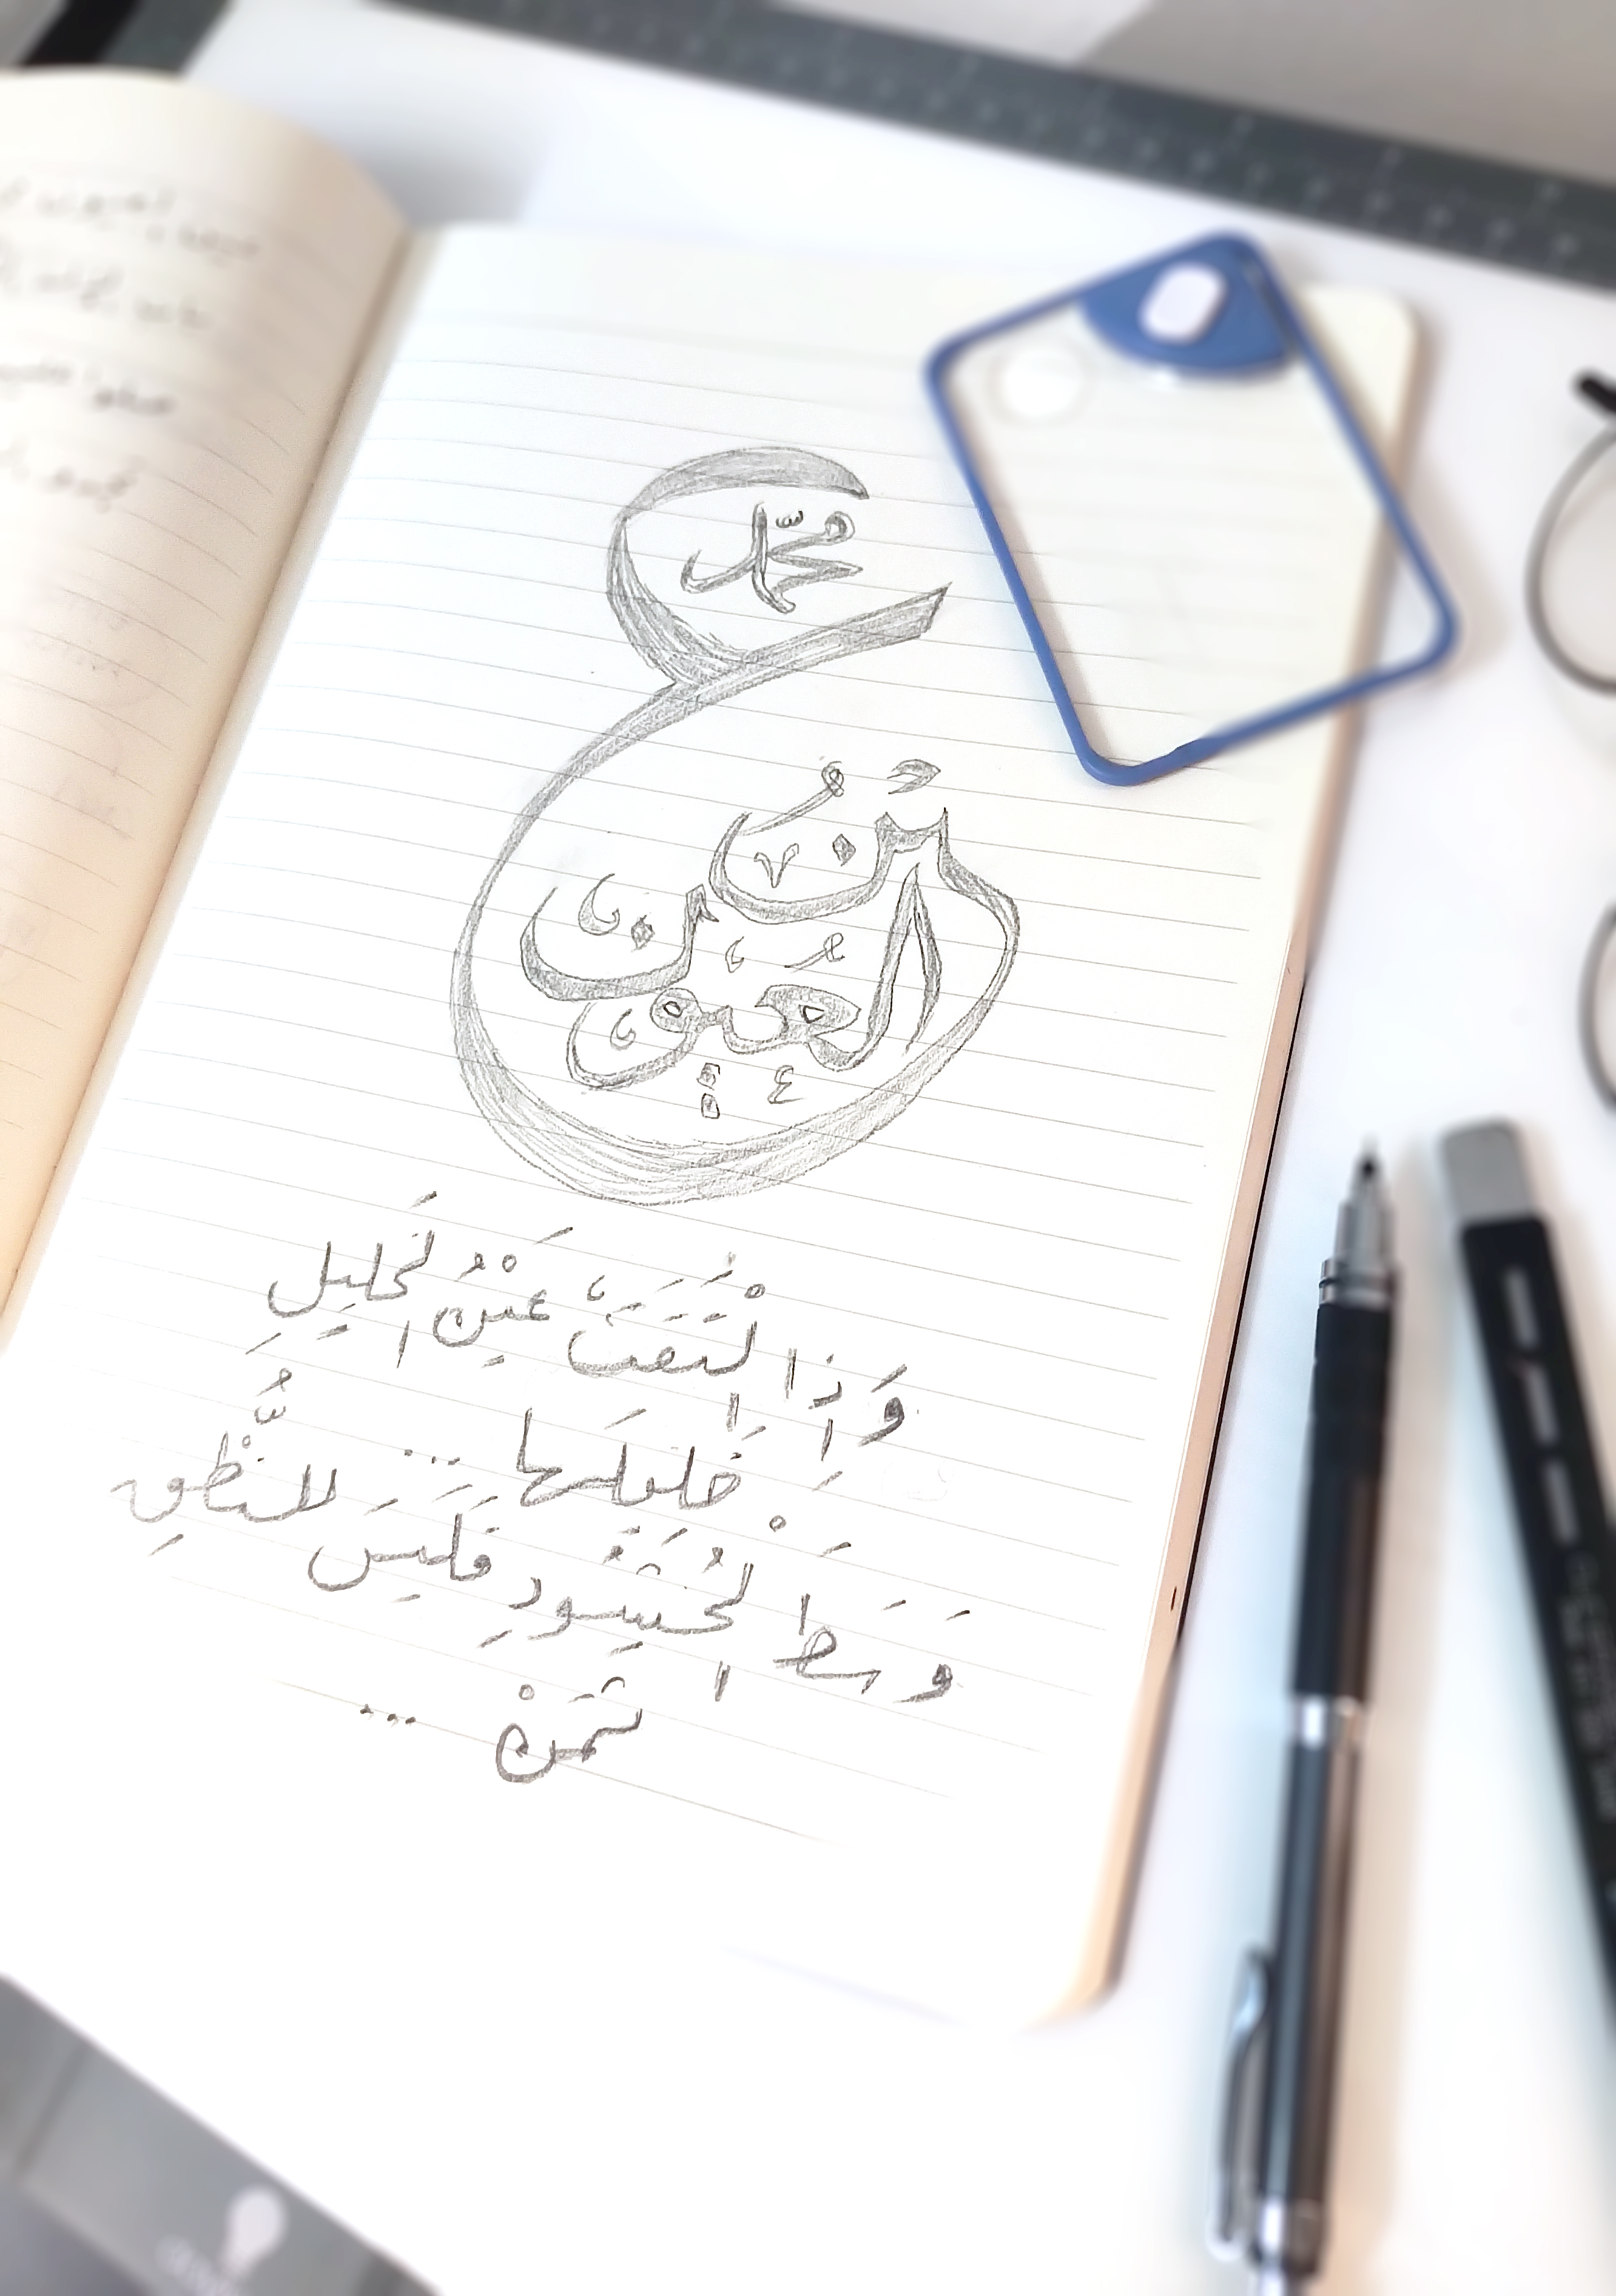 محمّد
عَيْنُ
العُيُونِ
وَإِذَا اِلْتَقَتْ عَيْنُ الْخَلِيلِ
خَلِيلَهَا ...
وَسَطَ الْحُشُودِ فَلَيْسَ لِلنُّطْقِ
ثَمَنْ ...